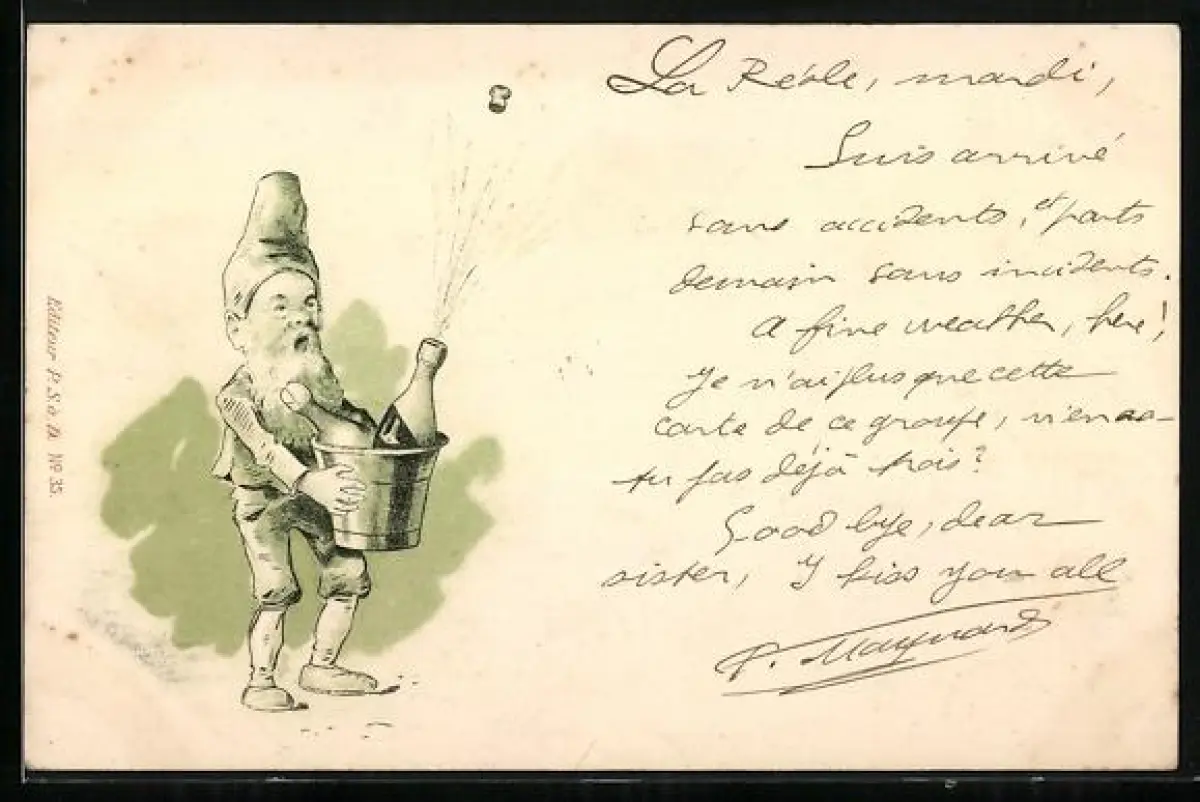 La Réole, mardi,
Suis arrivé
sans accidents, et parts
demain sans incidents.
A fine weather, here!
Je n'ai plus que cette
carte de ce groupe, n'en as-
tu pas déjà trois?
Good bye, dear
sister, I kiss you all
P. Maynard
Editeur P. S. à D. Nº 35.